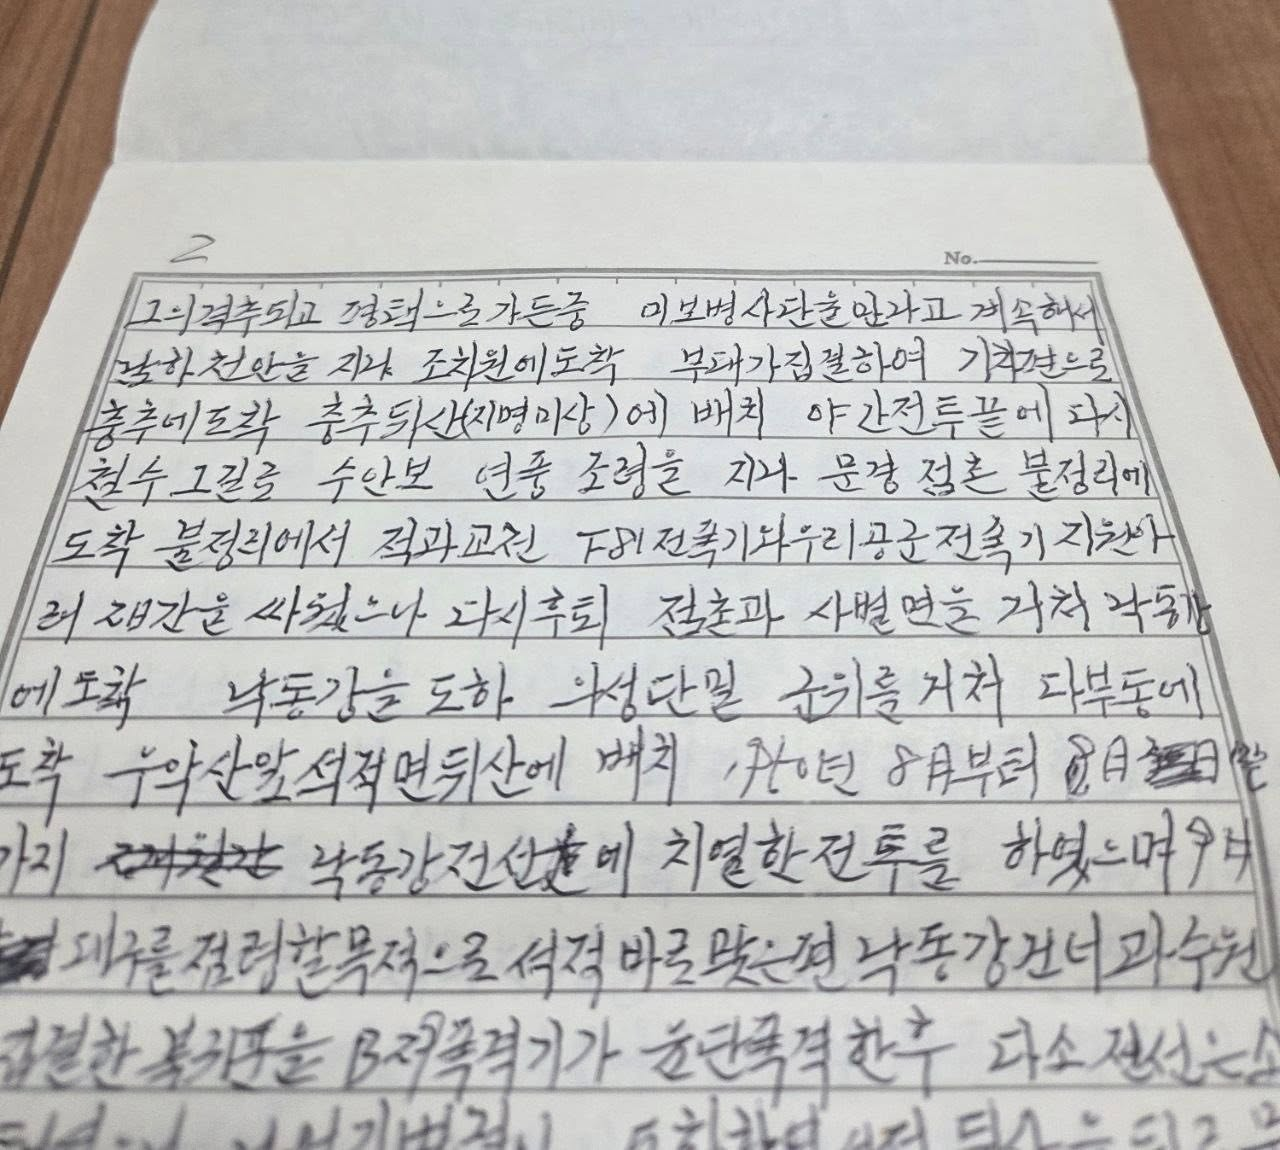 2
No.
그의격추되고 평택으로가든중 미보병사단을만나고 계속해서
남하 천안을 지나 조치원에도착 부대가집결하여 기차편으로
충추에도착 충추뒤산(지명미상)에 배치 야간전투끝에 다시
철수그길로 수안보 연풍 조령을 지나 문경 점촌 불정리에
도착 불정리에서 적과교전 F81전폭기와우리공군전폭기지원아
래 간을 싸웠으나 다시후퇴 점촌과 사벌면을 거처 낙동강
에도착 낙동강을 도하 의성단밀 군위를거처 다부동에
도착 우악산앞석적면뒤산에 배치 년 8月부터 8日
가지 낙동강전선에 치열한전투를 하였으며9月
대구를점령할목적으로 석적바로맞은편 낙동강건너과수원
집결한 B 폭격기가 융단폭격한후 다소전선은